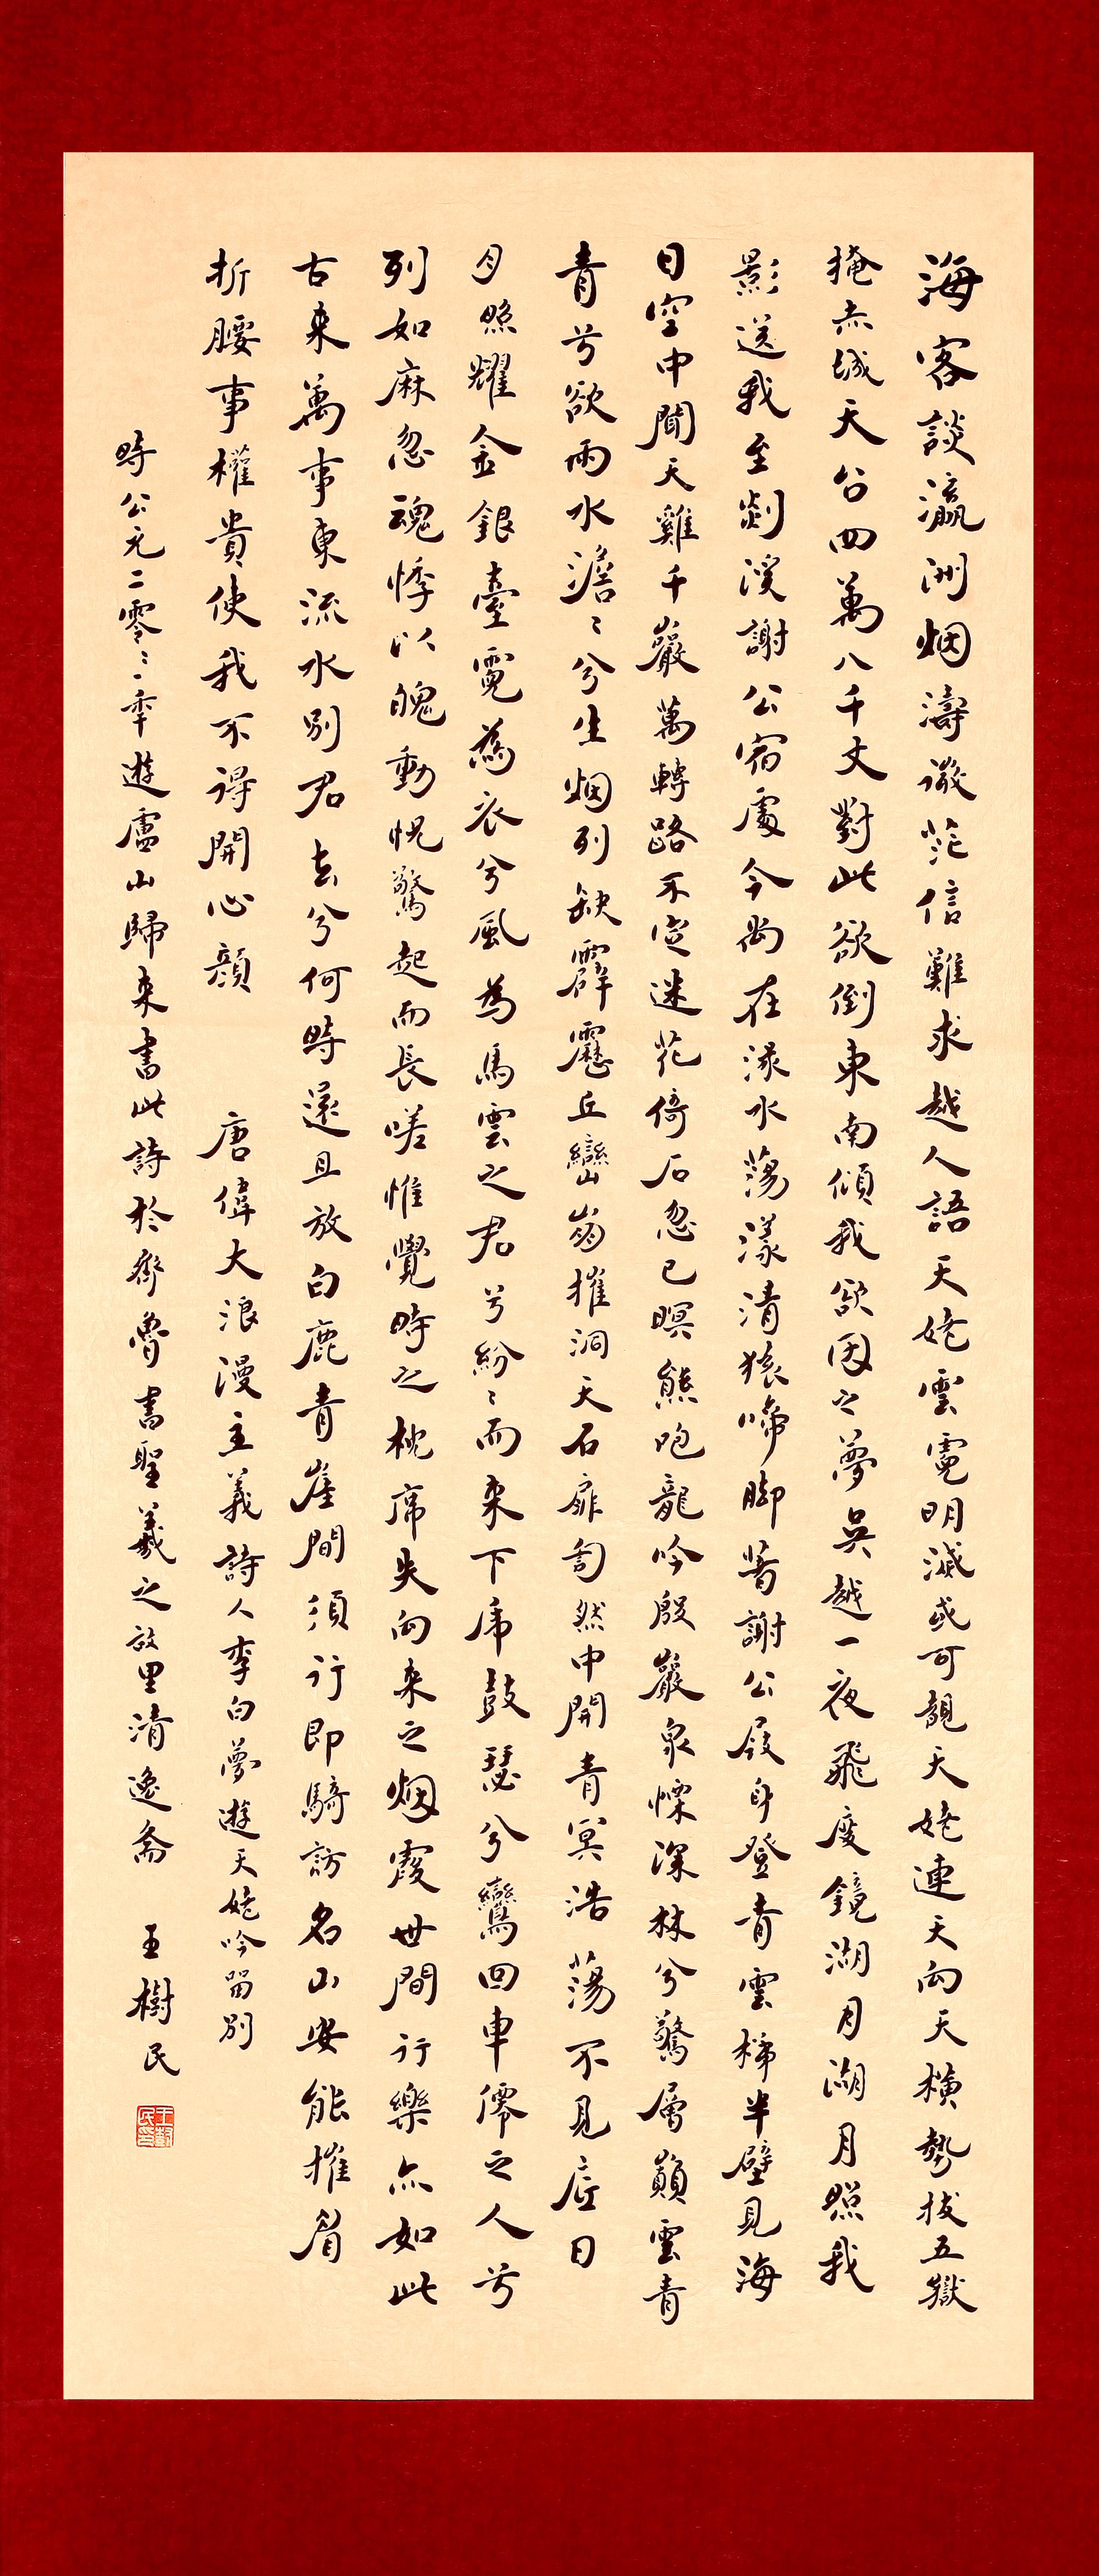 海客談瀛洲烟濤微茫信難求越人語天姥雲霓明滅或可覩天姥連天向天橫勢拔五嶽
掩赤城天台四萬八千丈對此欲倒東南傾我欲因之夢吳越一夜飛度鏡湖月湖月照我
影送我至剡溪謝公宿處今尚在淥水蕩漾清猿啼脚著謝公屐身登青雲梯半壁見海
日空中聞天雞千巖萬轉路不定迷花倚石忽已暝熊咆龍吟殷巖泉慄深林兮驚層巔雲青
青兮欲雨水澹〻兮生烟列缺霹靂丘巒崩摧洞天石扉訇然中開青冥浩蕩不見底日
月照耀金銀臺霓為衣兮風為馬雲之君兮紛〻而來下虎鼓瑟兮鸞回車僊之人兮
列如麻忽魂悸以魄動怳驚起而長嗟惟覺時之枕席失向來之烟霞世間行樂亦如此
古來萬事東流水別君去兮何時還且放白鹿青崖間須行即騎訪名山安能摧眉
折腰事權貴使我不得開心顏 唐偉大浪漫主義詩人李白夢遊天姥吟留別
時公元二零〻一年遊廬山歸來書此詩於齊魯書聖羲之故里清逸齋 王樹民
王樹民印